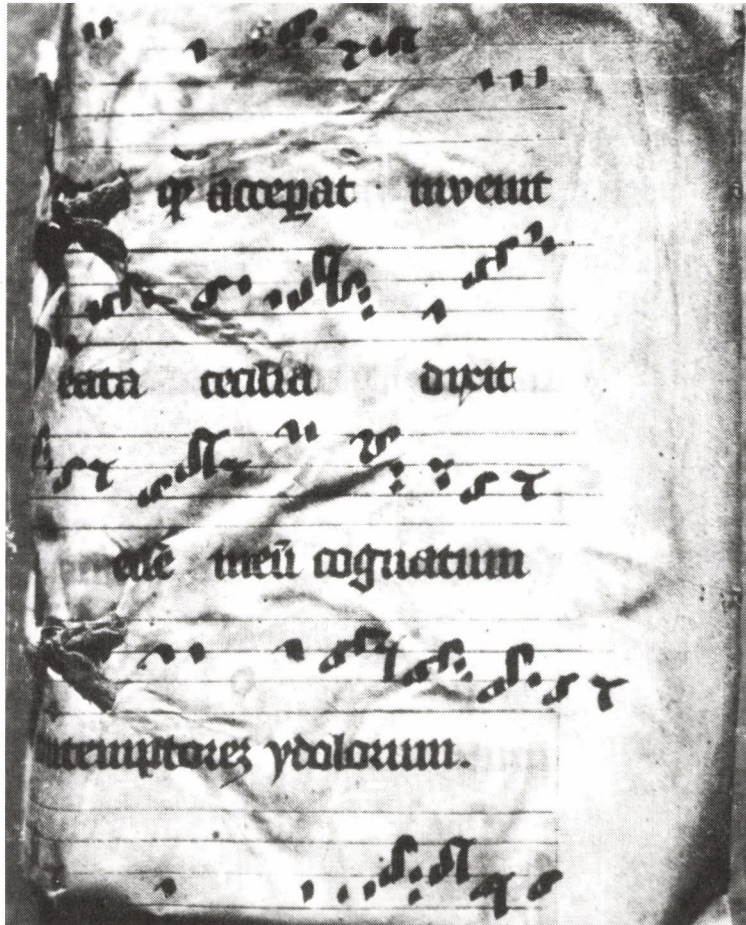 q̄ acceꝑat invenit
eata cecilia dixit
meū cognatum
ntemptorez ydolorum.